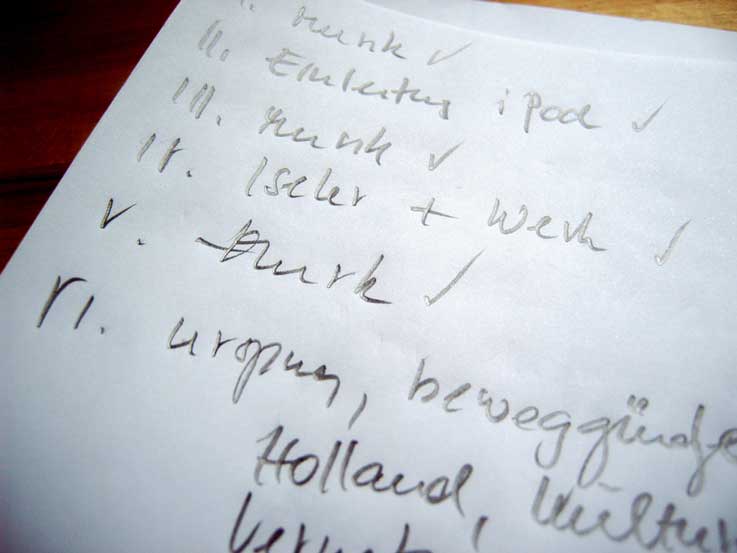 I. Musik ✓
II. Einleitung iPod ✓
III. Musik ✓
IV. Iseler + Werk ✓
V. Musik ✓
VI. Urspung, beweggünde
Holland, Kultur